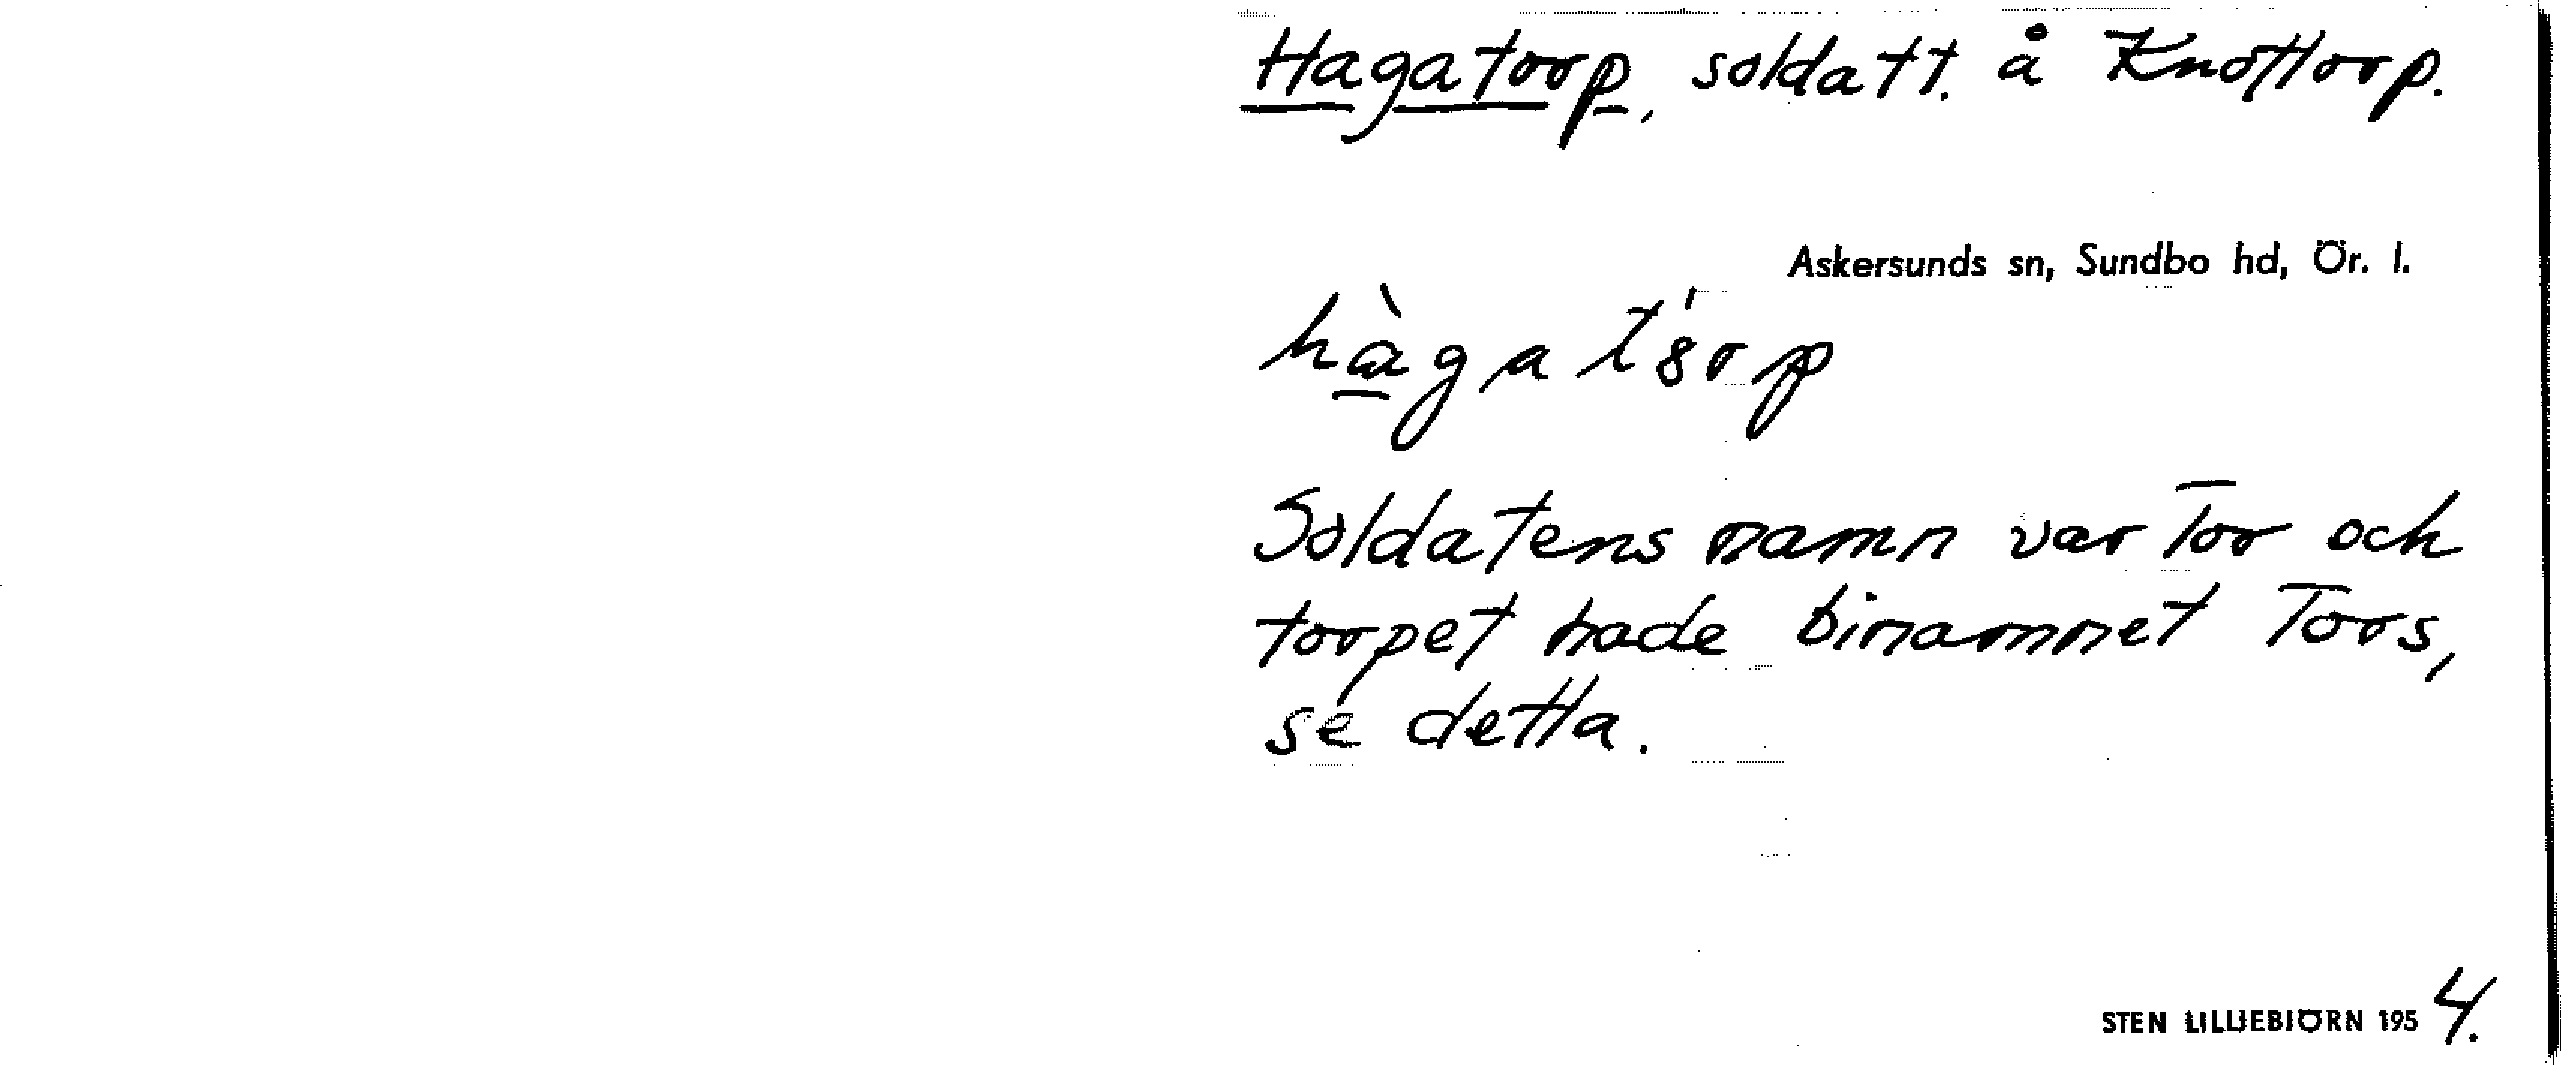 Hagatorp, soldatt. å Knottorp.
Askersunds sn, Sundbo hd, Ör. l.
Soldatens namn var Tor och
torpet hade binamnet Tors,
se detta.
STEN LILLIEBIÖRN 1954.